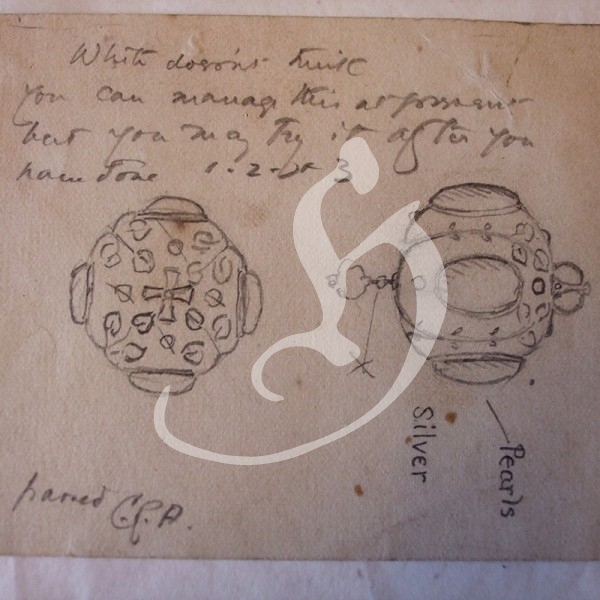 White doesn't think
you can manage this at present
but you may try it after you
have done 1 - 2 - & 3
Silver
Pearls
passed C.R.A.